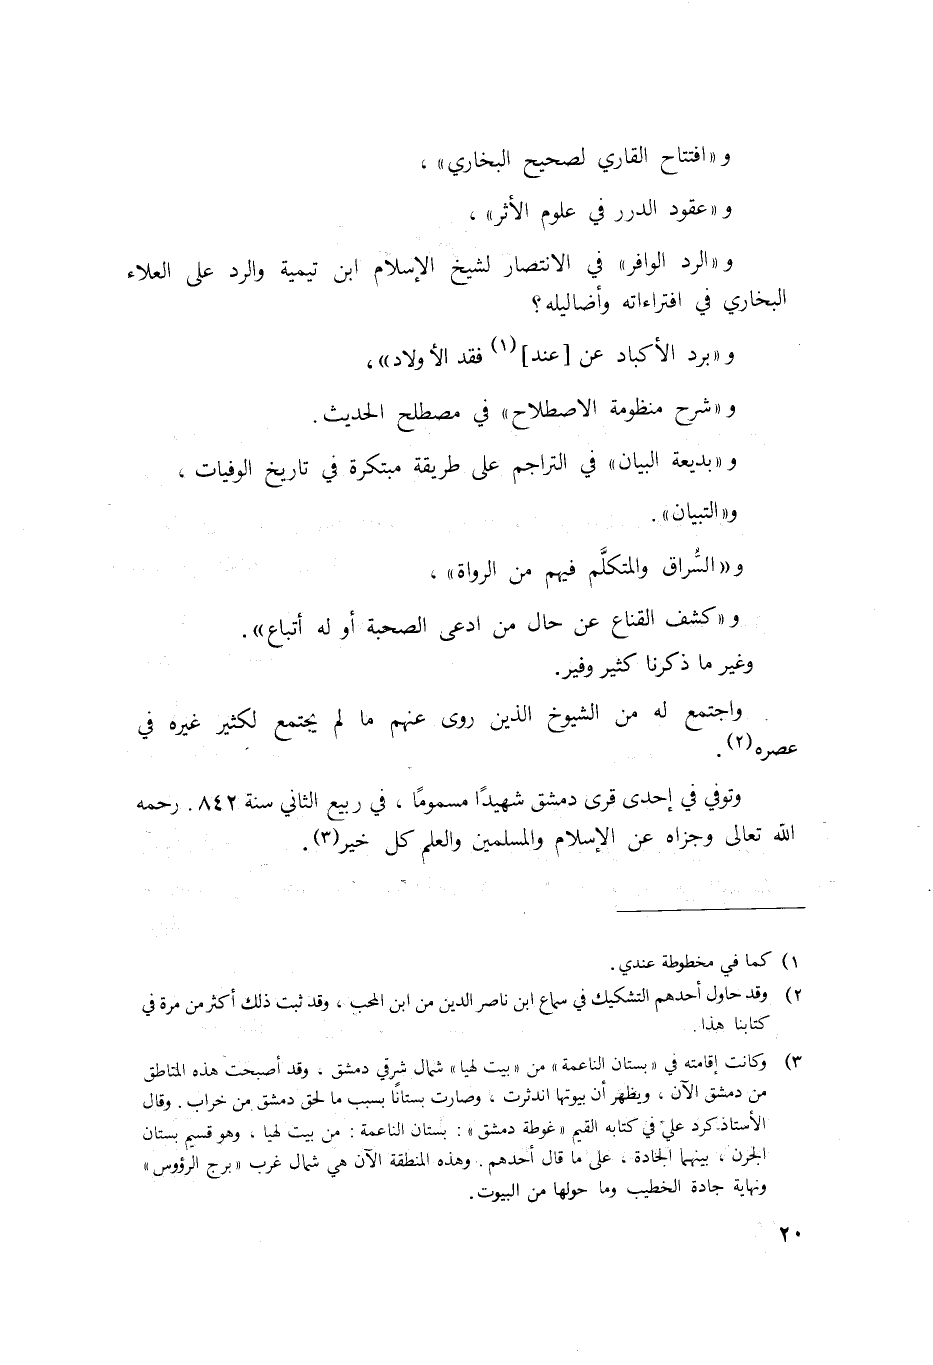 و «افتتاح القاري لصحيح البخاري» ،
و «عقود الدرر في علوم الأثر» ،
و «الرد الوافر» في الانتصار لشيخ الإسلام ابن تيمية والرد على العلاء
البخاري في افتراءاته وأضاليله؟
و «برد الأكباد عن [عند](١) فقد الأولاد»،
و «شرح منظومة الاصطلاح» في مصطلح الحديث.
و «بديعة البيان» في التراجم على طريقة مبتكرة في تاريخ الوفيات ،
و«التبيان».
و «السُّراق والمتكلَّم فيهم من الرواة» ،
و «كشف القناع عن حال من ادعى الصحبة أو له أتباع».
وغير ما ذكرنا كثير وفير.
واجتمع له من الشيوخ الذين روى عنهم ما لم يجتمع لكثير غيره في
عصره(٢).
وتوفي في إحدى قرى دمشق شهيدًا مسمومًا ، في ربيع الثاني سنة ٨٤٢. رحمه
الله تعالى وجزاه عن الإسلام والمسلمين والعلم كل خير(٣).
١) كما في مخطوطة عندي.
٢) وقد حاول أحدهم التشكيك في سماع ابن ناصر الدين من ابن المحب ، وقد ثبت ذلك أكثر من مرة في
كتابنا هذا.
٣) وكانت إقامته في «بستان الناعمة» من «بيت لهيا» شمال شرقي دمشق ، وقد أصبحت هذه المناطق
من دمشق الآن ، ويظهر أن بيوتها اندثرت ، وصارت بستانًا بسبب ما لحق دمشق من خراب. وقال
الأستاذ كرد علي في كتابه القيم «غوطة دمشق» : بستان الناعمة : من بيت لهيا ، وهو قسيم بستان
الجرن ، بينهما الجادة ، على ما قال أحدهم. وهذه المنطقة الآن هي شمال غرب «برج الرؤوس»
ونهاية جادة الخطيب وما حولها من البيوت.
٢٠